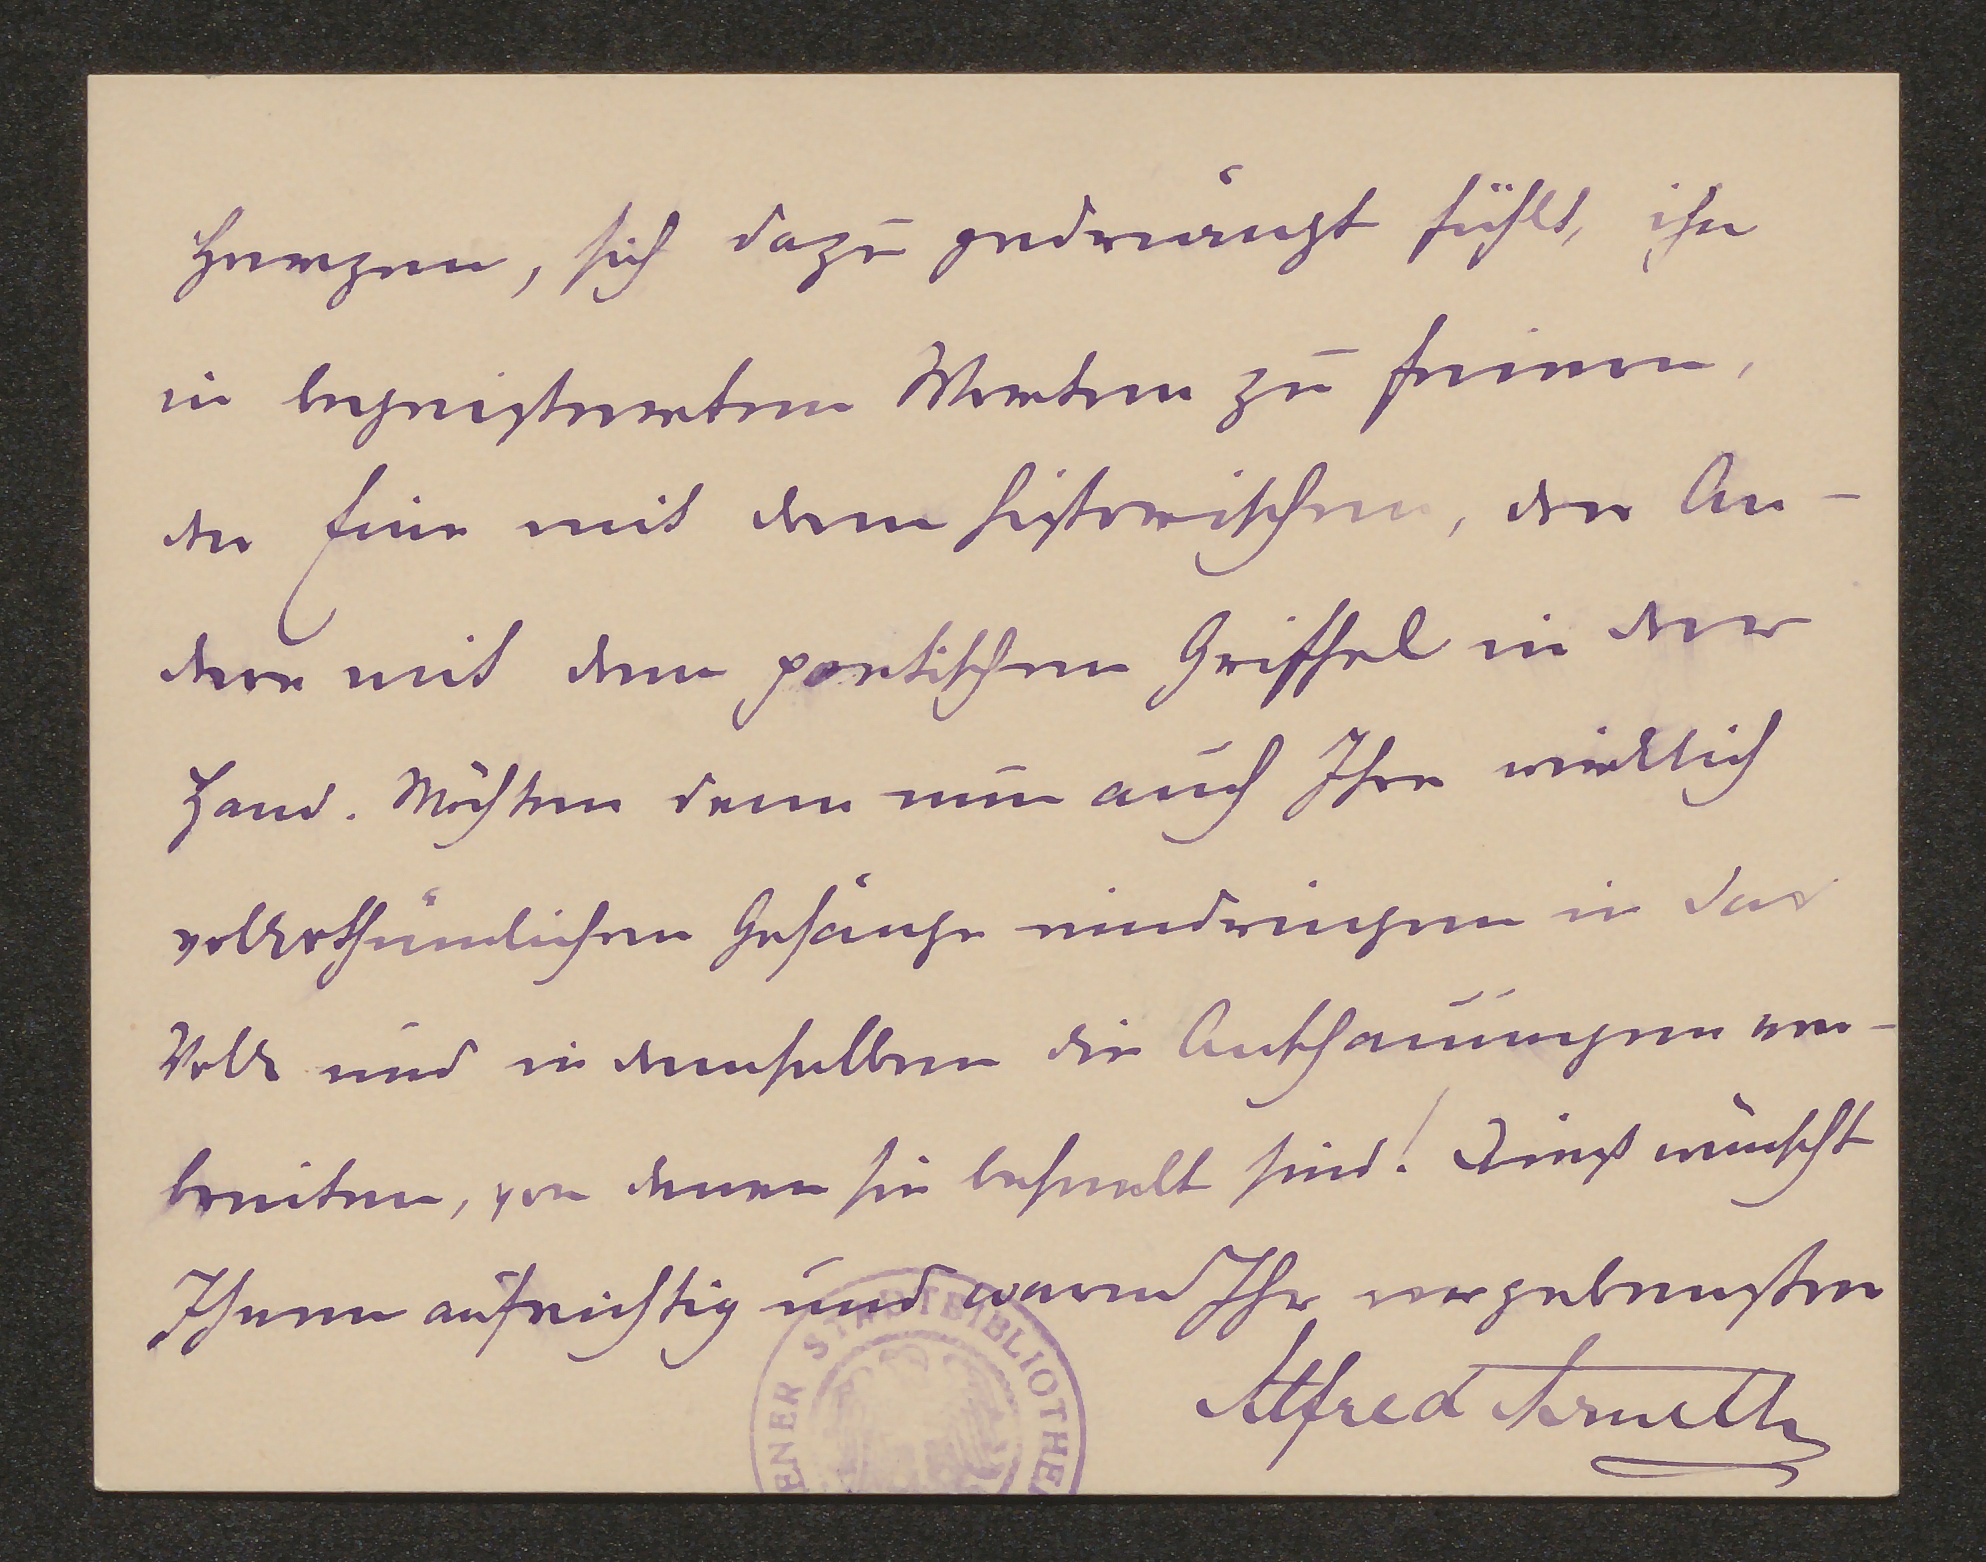 Herzen, sich dazu gedrängt fühlt, ihn
in begeisterten Worten zu feiern,
der Eine mit dem historischen, der An-
dere mit dem poetischen Griffel in der
Hand. Möchten denn nun auch Ihre wirklich
volksthümlichen Gesänge eindringen in das
Volk und in demselben die Anschauungen ver-
breiten, von denen sie beseelt sind! Dieß wünscht
Ihnen aufrichtig und warm Ihr ergebenster
Alfred Arneth
ENER STADTBIBLIOTHE